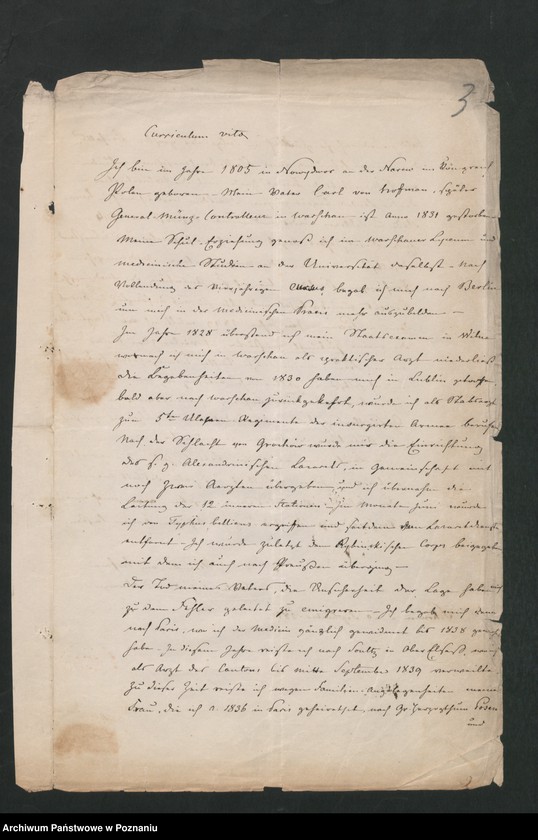 3
Curriculum vitæ
Ich bin im Jahre 1805 in Nowydwor an der Narew im Königreich
Polen geboren. Mein Vater Carl von Hoffman, später
General-Münz-Controlleur in Warschau ist Anno 1831 gestorben
Meine Schul-Erziehung genoß ich im Warschauer Lyceum und
medicinische Studien an der Universität daselbst. Nach
Vollendung des vierjährigen Cursus, begab ich mich nach Berlin
um mich in der medicinischen Praxis mehr auszubilden —
Im Jahre 1828 überstand ich mein Staatsexamen in Wilna
wonach ich mich in Warschau als praktischer Arzt niederließ
Die Begebenheiten von 1830 haben mich in Lublin getroffen
bald aber nach Warschau zurückgekehrt, wurde ich als Stabsarzt
zum 5ten Uhlanen Regimente der insurgirten Armee berufen
Nach der Schlacht von Grochów wurde mir die Einrichtung
des s. g. Alexandrinischen Lazareths, in Gemeinschaft mit
noch zwei Aerzten übergeben und ich übernahm die
Leitung der 12 inneren Stationen. Im Monate Juni wurde
ich von Typhus bellicus ergriffen und seitdem vom Lazarethdienste
entfernt. Ich wurde zuletzt dem Rybinskischen Corps beigegeben
mit dem ich auch nach Preußen überging —
Der Tod meines Vaters, die Unsicherheit der Lage haben mich
zu dem Fehler geleitet zu emigriren — Ich begab mich dann
nach Paris, wo ich der Medicin gänzlich gewidmet bis 1838 gewohnt
habe. In diesem Jahre reiste ich nach Soultz in Ober Elsaß, wo ich
als Arzt des Cantons bis mitte September 1839 verweilte
Zu dieser Zeit reiste ich wegen Familien-Angelegenheiten meiner
Frau, die ich a. 1836 in Paris geheirathet, nach Gr. Herzogthum Posen
und
Archiwum Państwowe w Poznaniu